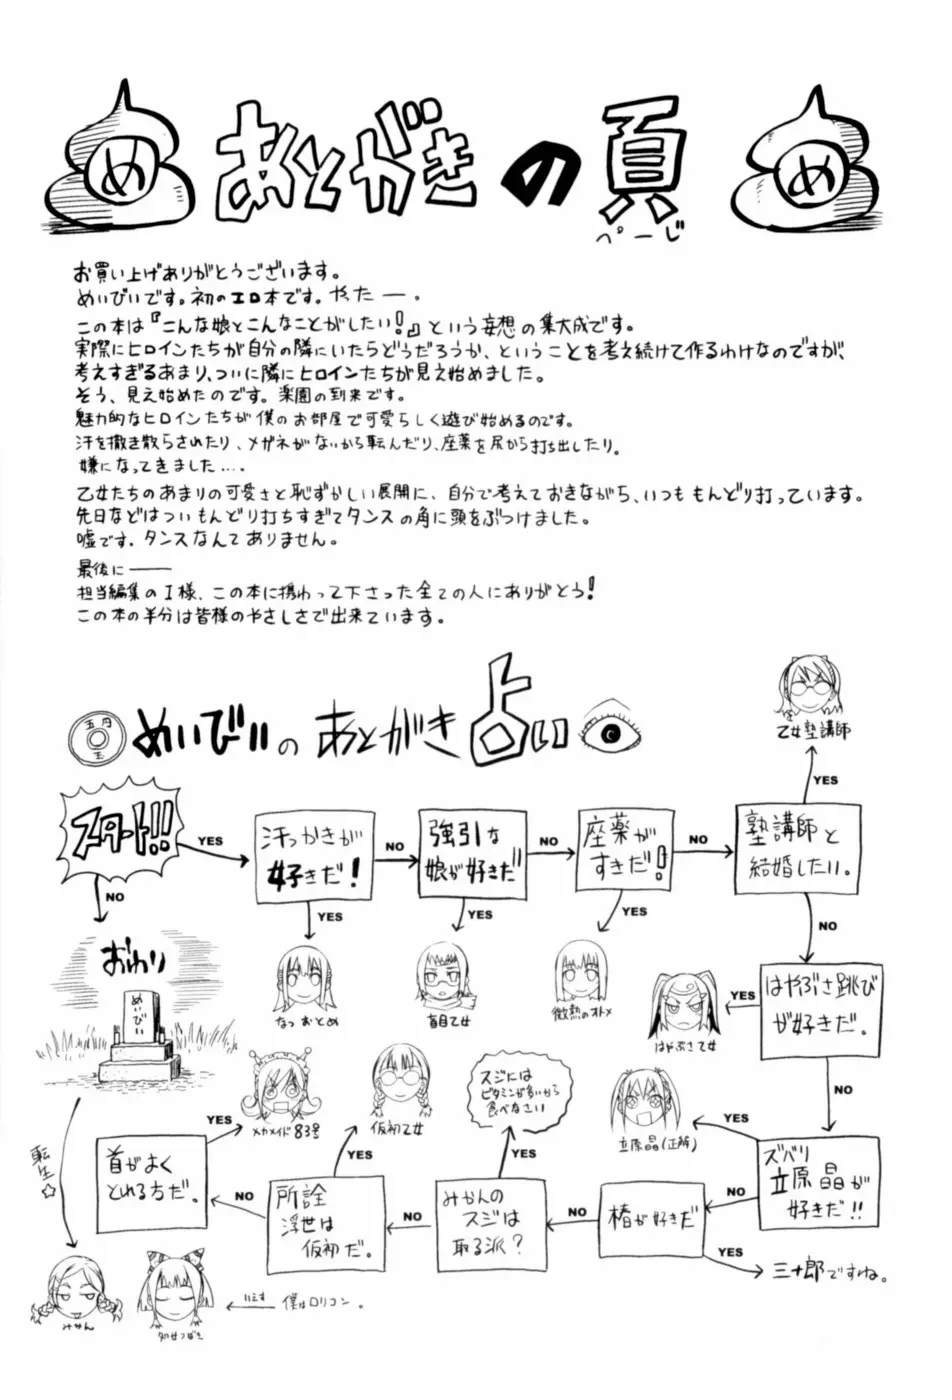 め
あとがきの頁
ぺーじ
め
お買い上げありがとうございます。
めいびいです。初のエロ本です。やったー。
この本は『こんな娘とこんなことがしたい!』という妄想の集大成です。
実際にヒロインたちが自分の隣にいたらどうだろうか、ということを考え続けて作るわけなのですが、
考えすぎるあまり、ついに隣にヒロインたちが見え始めました。
そう、見え始めたのです。楽園の到来です。
魅力的なヒロインたちが僕のお部屋で可愛らしく遊び始めるのです。
汗を撒き散らされたり、メガネがないから転んだり、座薬を尻から打ち出したり。
嫌になってきました....
乙女たちのあまりの可愛さと恥ずかしい展開に、自分で考えておきながら、いつももんどり打っています。
先日などはついもんどり打ちすぎてタンスの角に頭をぶつけました。
嘘です。タンスなんてありません。
最後に――
担当編集のI様、この本に携わって下さった全ての人にありがとう!
この本の半分は皆様のやさしさで出来ています。
五円
玉
めいびいのあとがき占い
スタート!!
YES
汗っかきが
好きだ!
NO
強引な
娘が好きだ
NO
座薬が
すきだ!
NO
塾講師と
結婚したい。
YES
乙女塾講師
NO
YES
なつおとめ
YES
盲目乙女
YES
微熱のオトメ
NO
はやぶさ跳び
が好きだ。
YES
はやぶさ乙女
NO
ズバリ
立原晶が
好きだ!!
YES
立原晶(正解)
NO
椿が好きだ
YES
三十郎ですね。
NO
みかんの
スジは
取る派?
YES
スジには
ビタミンが多いから
食べなさい
NO
所詮
浮世は
仮初だ。
YES
仮初乙女
NO
首がよく
とれる方だ。
YES
メカメイド83号
おわり
めいびい
転生☆
みかん
いえす
僕はロリコン。